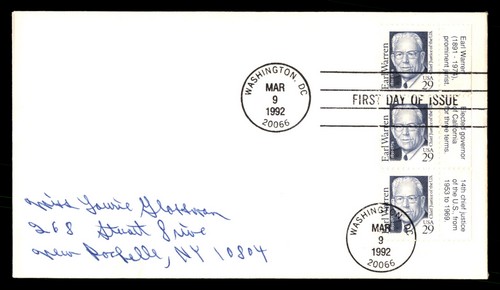 Earl Warren
(1891 - 1974),
prominent jurist.
Earl Warren
Chief Justice of the U.S.
USA
29
WASHINGTON, DC
MAR
9
1992
20066
FIRST DAY OF ISSUE
Elected governor
of California
for three terms.
Earl Warren
Chief Justice of the U.S.
USA
29
14th chief justice
of the U.S. from
1953 to 1969.
Earl Warren
Chief Justice of the U.S.
USA
29
WASHINGTON, DC
MAR
9
1992
20066
Miss Laurie
268 Stuart Drive
New Rochelle, NY 10804